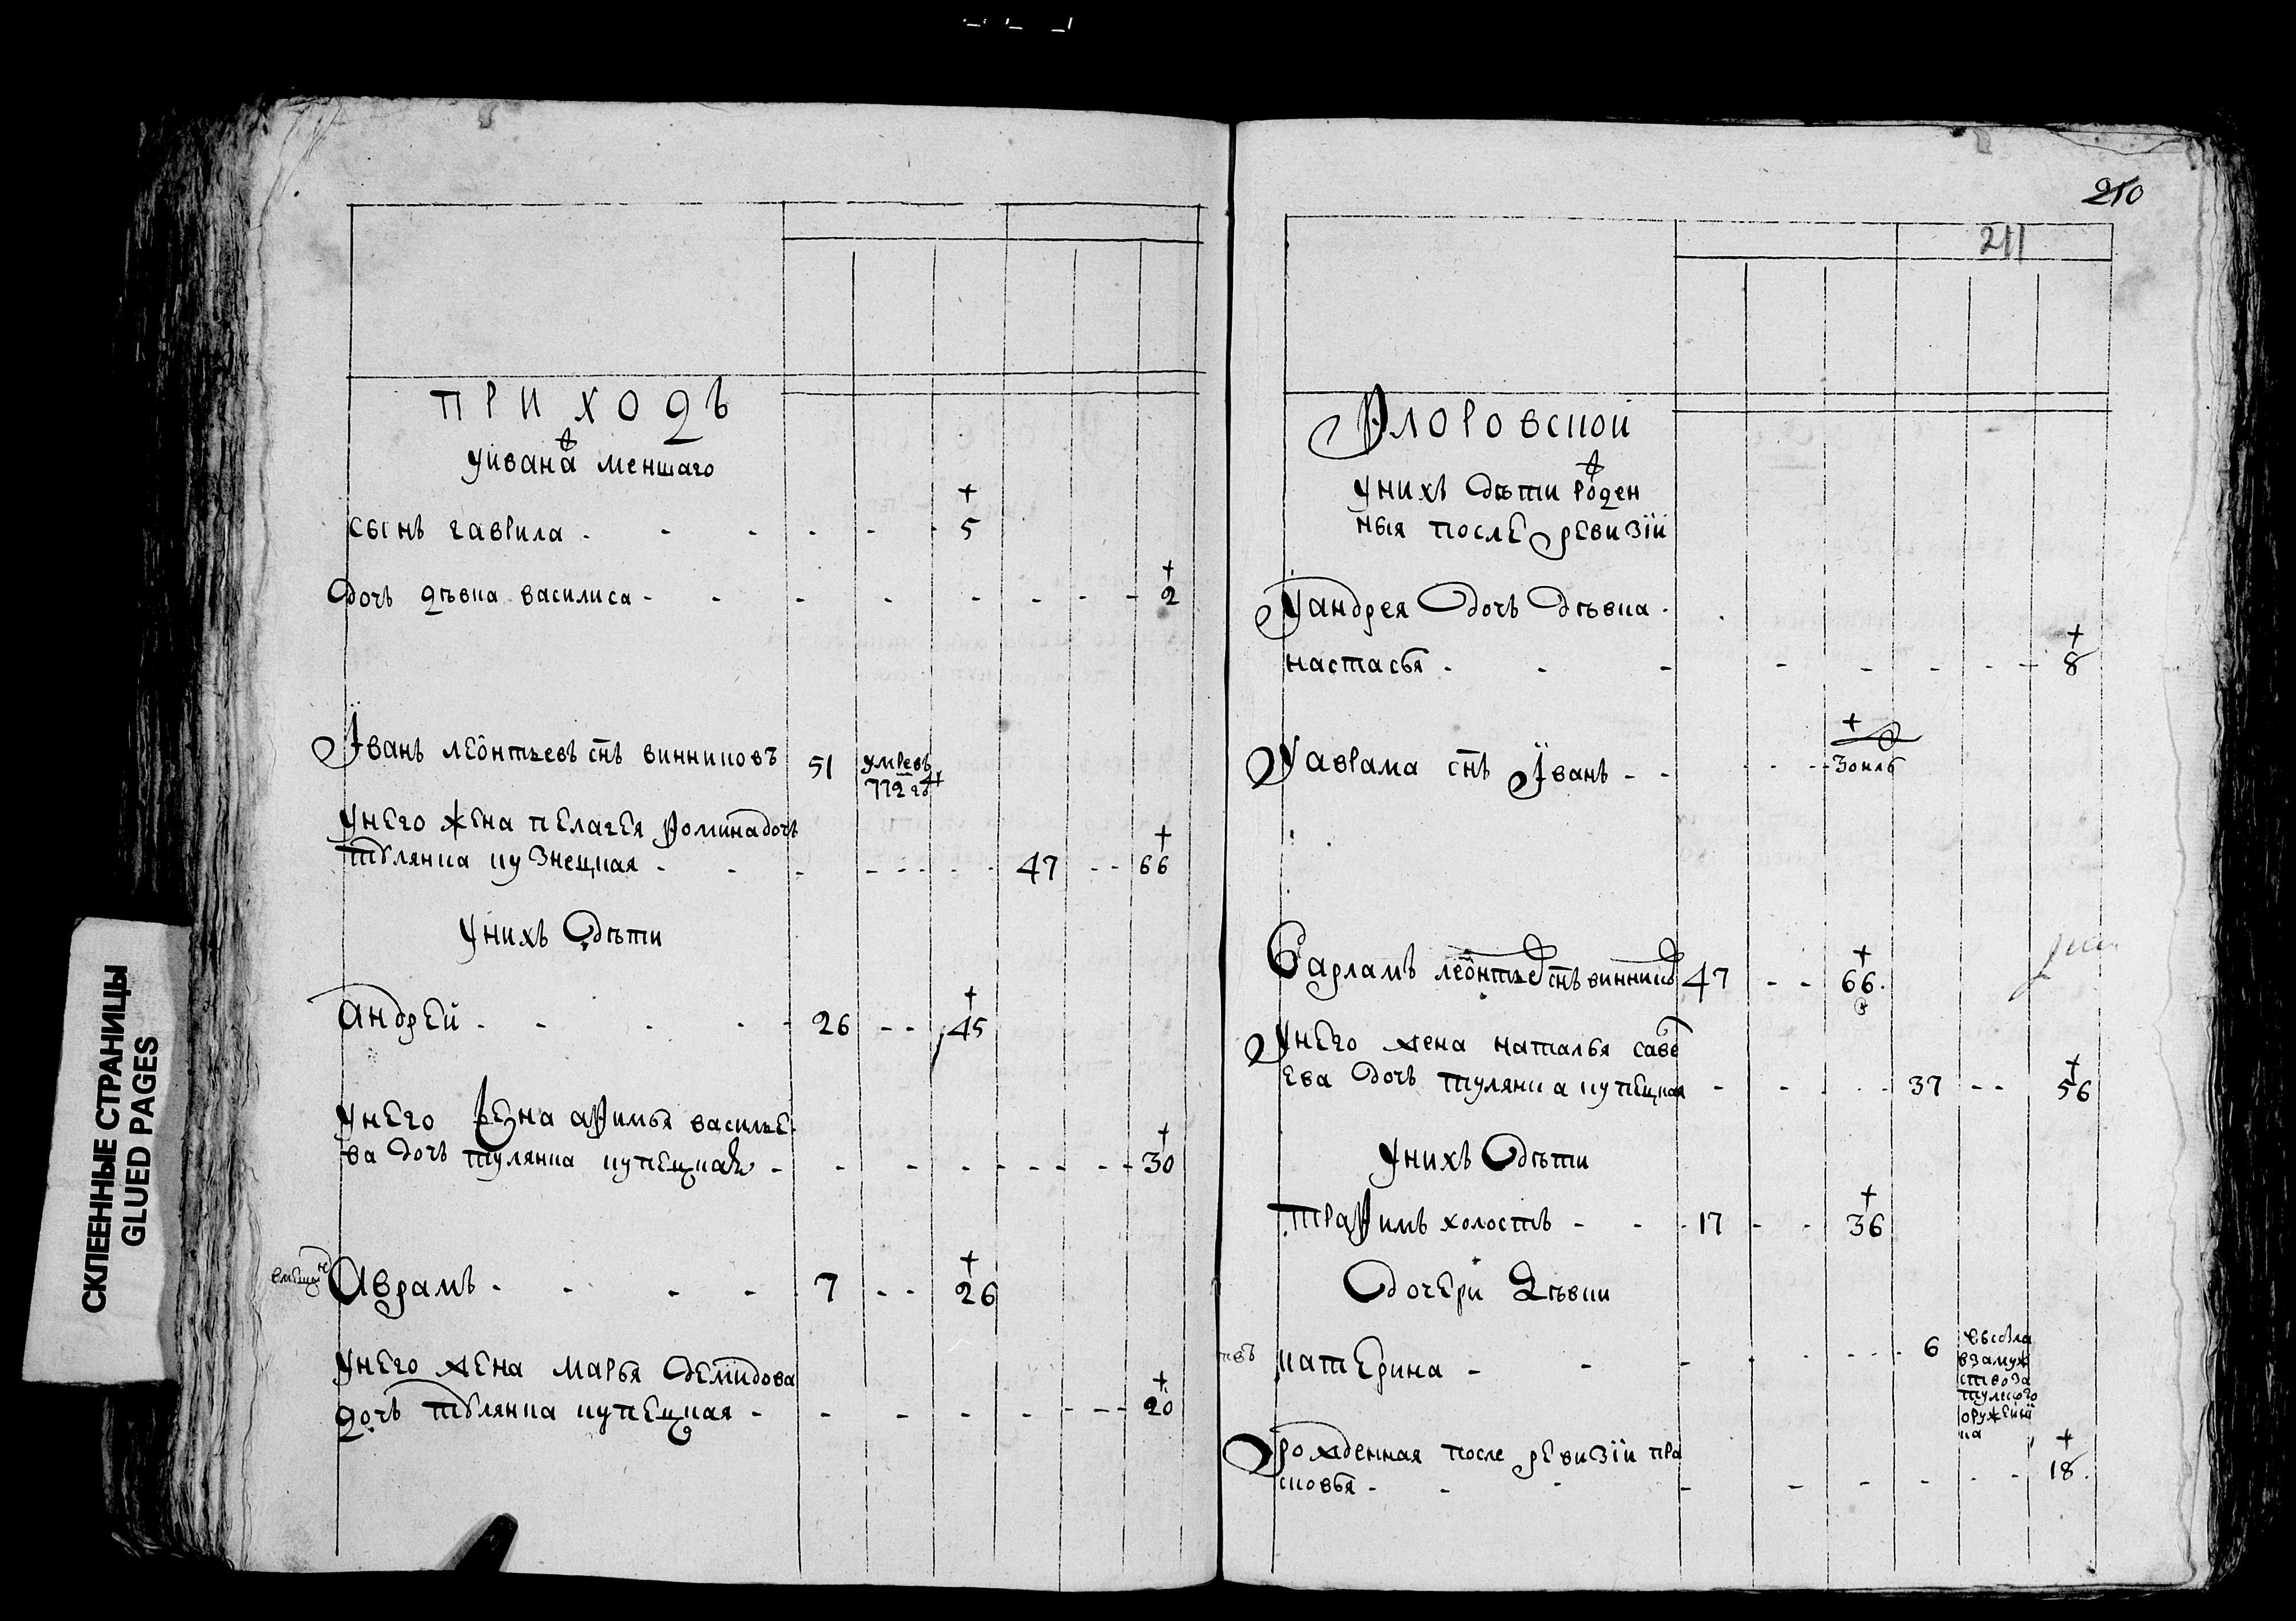 СКЛЕЕННЫЕ СТРАНИЦЫ
GLUED PAGES
ПРИХОДЪ
уивана меншаго
сынъ гаврила - - - - - - + 5
дочь дѣвка василиса - - - - - - - - - + 2
Їванъ леонтьевъ снъ винниковъ 51 умре въ
772 го
унего жена пелагея фомина дочь
тулянка кузнецкая - - - - - - - 47 - - + 66
унихъ дѣти
андрей - - - - 26 - - + 45
унего жена афимья василье-
ва дочь тулянка купецкая - - - - - - - - + 30
Аврамъ - - - - 7 - - + 26
унего жена марья демидова
дочь тулянка купецкая - - - - - - - - + 20
210
211
Флоровской
унихъ дѣти рожден
ныя после ревизїи
уандрея дочь дѣвка
настасья - - - - - - - - + 8
уаврама снъ їванъ - - - - - +
30 нль
Варламъ леонтьевъ снъ винников 47 - - + 66
унего жена наталья саве
ева дочь тулянка купецкая - - - - 37 - - + 56
унихъ дѣти
трафимъ холостъ - - - 17 - - + 36
дочери дѣвки
катерина - - - - - - - 6 выдана
взамуж
ство за
тулского
оружейни
ка
рожденная после ревизїи пра
сковья - - - - - - - - - + 18